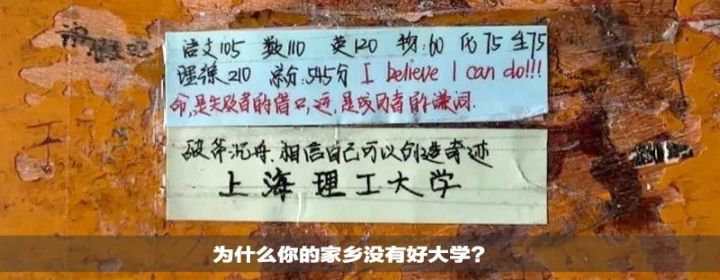 语文105 数110 英120 物:60 化75 生75
理综210 总分:545分 I believe I can do!!!
命,是失败者的借口,运,是成功者的谦词.
破釜沉舟.相信自己可以创造奇迹
上海理工大学
为什么你的家乡没有好大学?